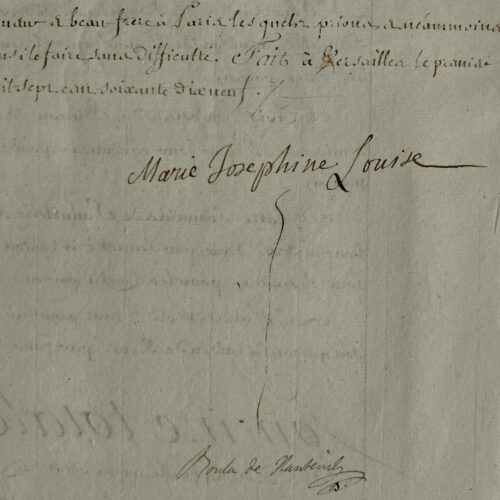 mant a beau frere à Paris lesquels prions a néaumoins
le faire sans difficulté. Fait à Versailles le premier
il sept cen soixante dix neuf.
Marie Josephine Louise
Boula de Nanteuil